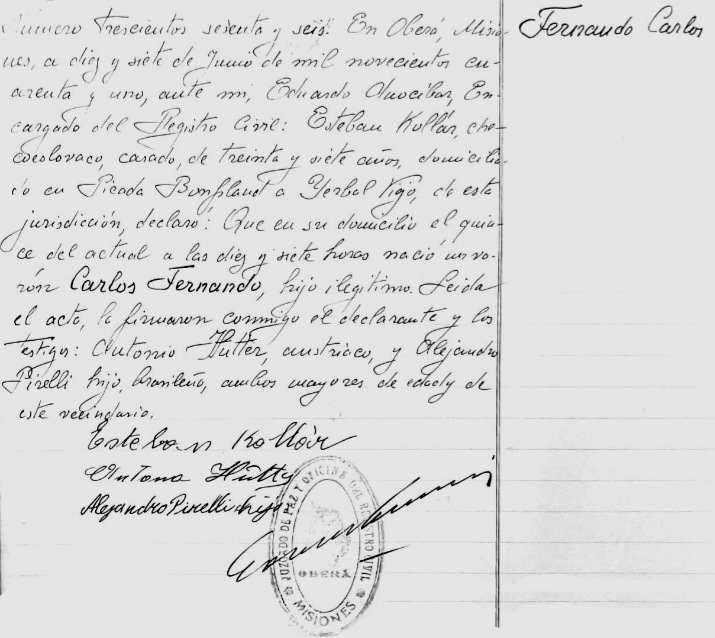 Número trescientos sesenta y seis: En Oberá, Misio-
nes, a diez y siete de Junio de mil novecientos cu-
arenta y uno, ante mi, Eduardo Anocibar, En-
cargado del Registro Civil: Esteban Kollár, che-
coeslovaco, casado, de treinta y siete años, domicilia-
do en Picada Bonpland a Yerbal Viejo, de esta
jurisdicción, declaró: Que en su domicilio el quin-
ce del actual a las diez y siete horas nació un va-
rón Carlos Fernando, hijo ilegitimo. Leida
el acta, la firmaron conmigo el declarante y los
testigos: Antonio Hutter, austriaco, y Alejandro
Pirelli hijo, brasileño, ambos mayores de edad y de
este vecindario.
Esteban Kollár
Antono Hutty
Alejandro Pirelli hijo
JUZGADO DE PAZ Y OFICINA DEL REGISTRO CIVIL
OBERÁ
MISIONES
Fernando Carlos